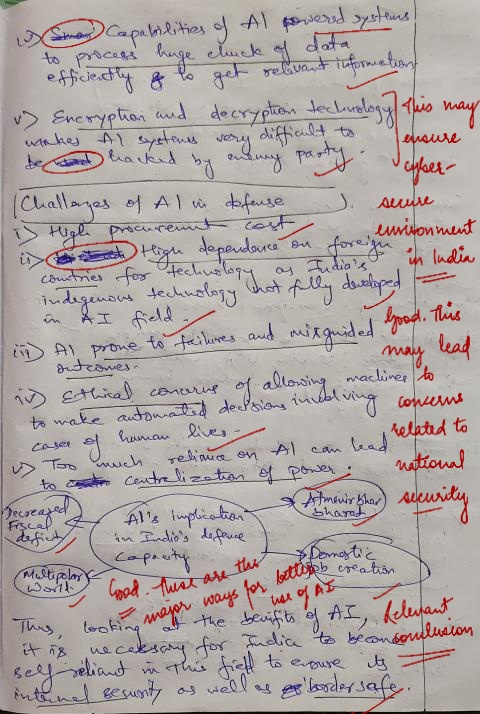 iv) Capabilities of AI powered systems
to process huge chuck of data
efficiently to get relevant information
v) Encryption and decryption technology
makes AI systems very difficult to
be hacked by enemy party.
This may
ensure
cyber-
secure
environment
in India
Challenges of AI in defense
i) High procurement cost
ii) High dependance on foreign
countries for technology as India's
indigenous technology not fully developed
in AI field.
iii) AI prone to failures and misguided
outcomes.
Good. This
may lead
to
concerns
related to
national
security
iv) Ethical concerns of allowing machines
to make automated decisions involving
cases of human lives.
v) Too much reliance on AI can lead
to centralization of power.
Decreased
Fiscal
deficit
AI's implication
in India's defence
Capacity
Atmanirbhar
bharat
Multipolar
World.
Domestic
job creation
Good. These are the
major ways for better
use of AI
Thus, looking at the benifits of AI,
it is necessary for India to become
self reliant in this field to ensure its
internal security as well as border safe.
Relevant
conclusion